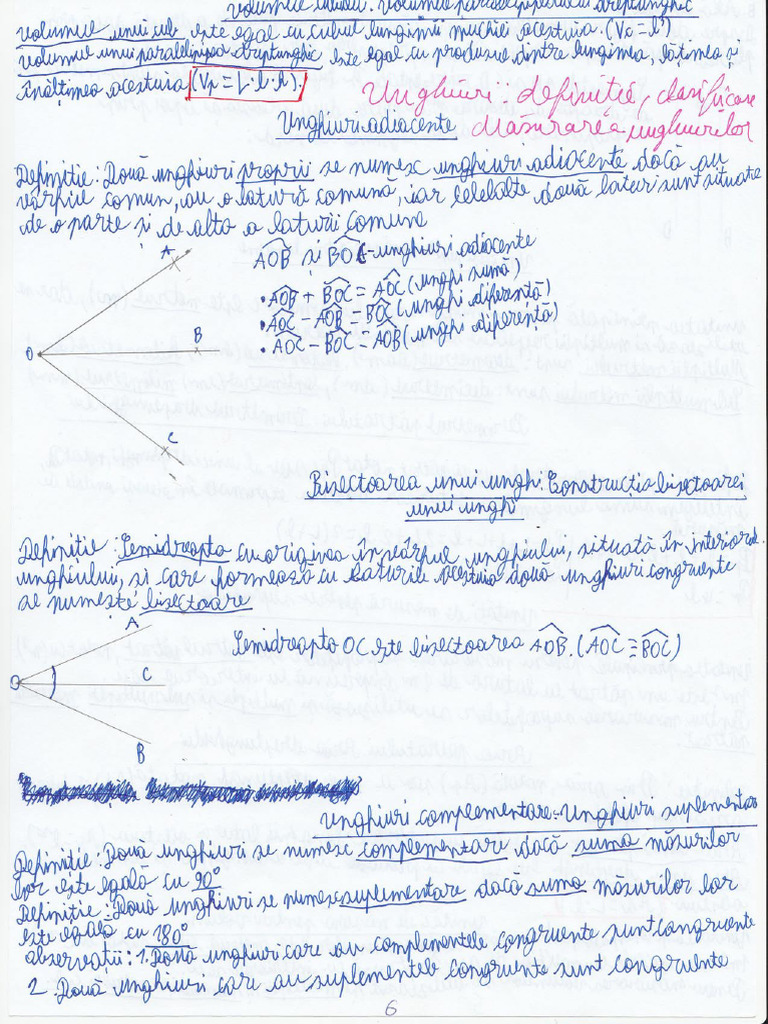 Volumul cubului. Volumul paralelipipedului dreptunghic
Volumul unui cub este egal cu cubul lungimii muchiei acestuia. (V = l³)
Volumul unui paralelipiped dreptunghic este egal cu produsul dintre lungimea, lățimea și
înălțimea acestuia (Vp = L·l·h).
Unghiuri definiție, clasificare
Măsurarea unghiurilor
Unghiuri adiacente
Definiție: Două unghiuri proprii se numesc unghiuri adiacente dacă au
vârful comun, au o latură comună, iar celelalte două laturi sunt situate
de o parte și de alta a laturii comune
A
B
O
C
AOB și BOC - unghiuri adiacente
• AOB + BOC = AOC (unghi sumă)
• AOC - AOB = BOC (unghi diferență)
• AOC - BOC = AOB (unghi diferență)
Bisectoarea unui unghi. Construcția bisectoarei
unui unghi
Definiție: Semidreapta cu originea în vârful unghiului, situată în interiorul
unghiului, și care formează cu laturile acestuia două unghiuri congruente
se numește bisectoare
A
O
C
B
Semidreapta OC este bisectoarea AOB. (AOC ≡ BOC)
Unghiuri complementare. Unghiuri suplementare
Definiție: Două unghiuri se numesc complementare dacă suma măsurilor
lor este egală cu 90°
Definiție: Două unghiuri se numesc suplementare dacă suma măsurilor lor
este egală cu 180°
observații: 1. Două unghiuri care au complementele congruente sunt congruente
2. Două unghiuri car au suplementele congruente sunt congruente
6